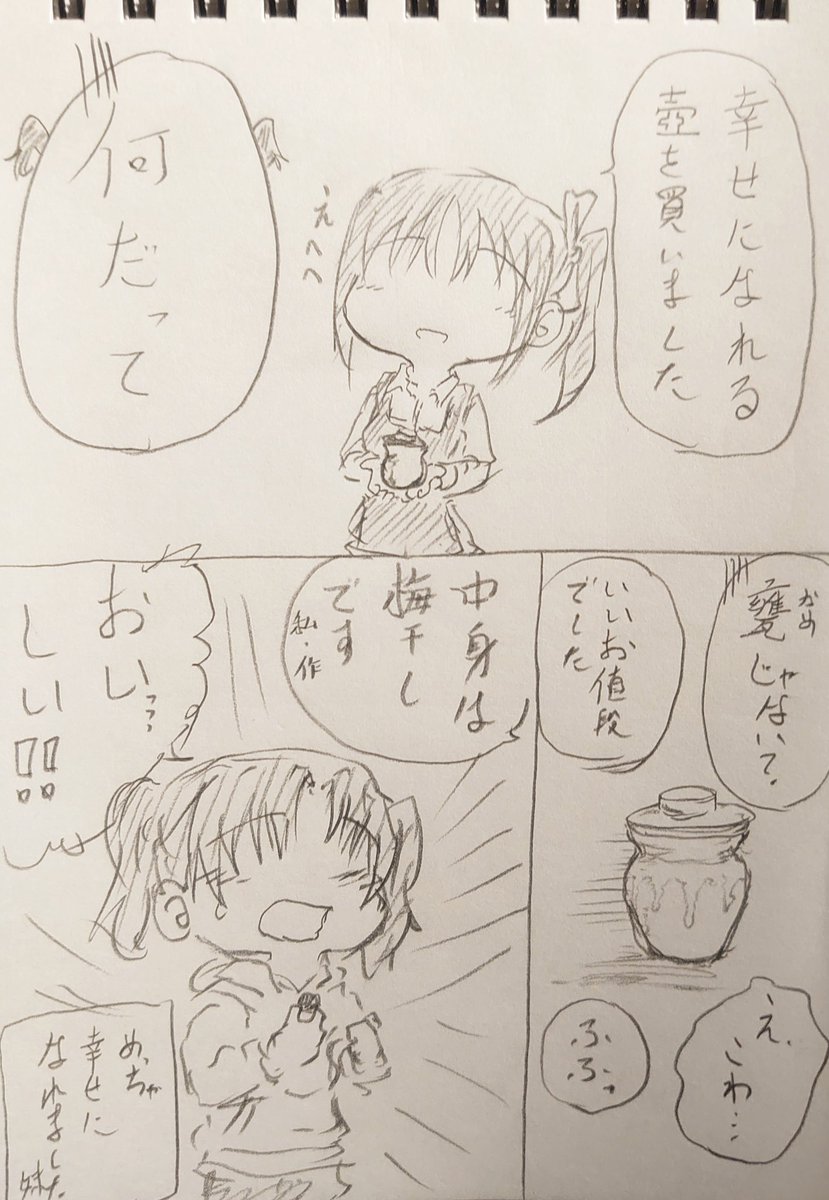 幸せになれる
壺を買いました
えへへ
何だって
かめ
甕じゃない?
いいお値段
でした
え、
こわ…
ふふっ
中身は
梅干し
です
私・作
おい…
しい!!
めっちゃ
幸せに
なれました
妹